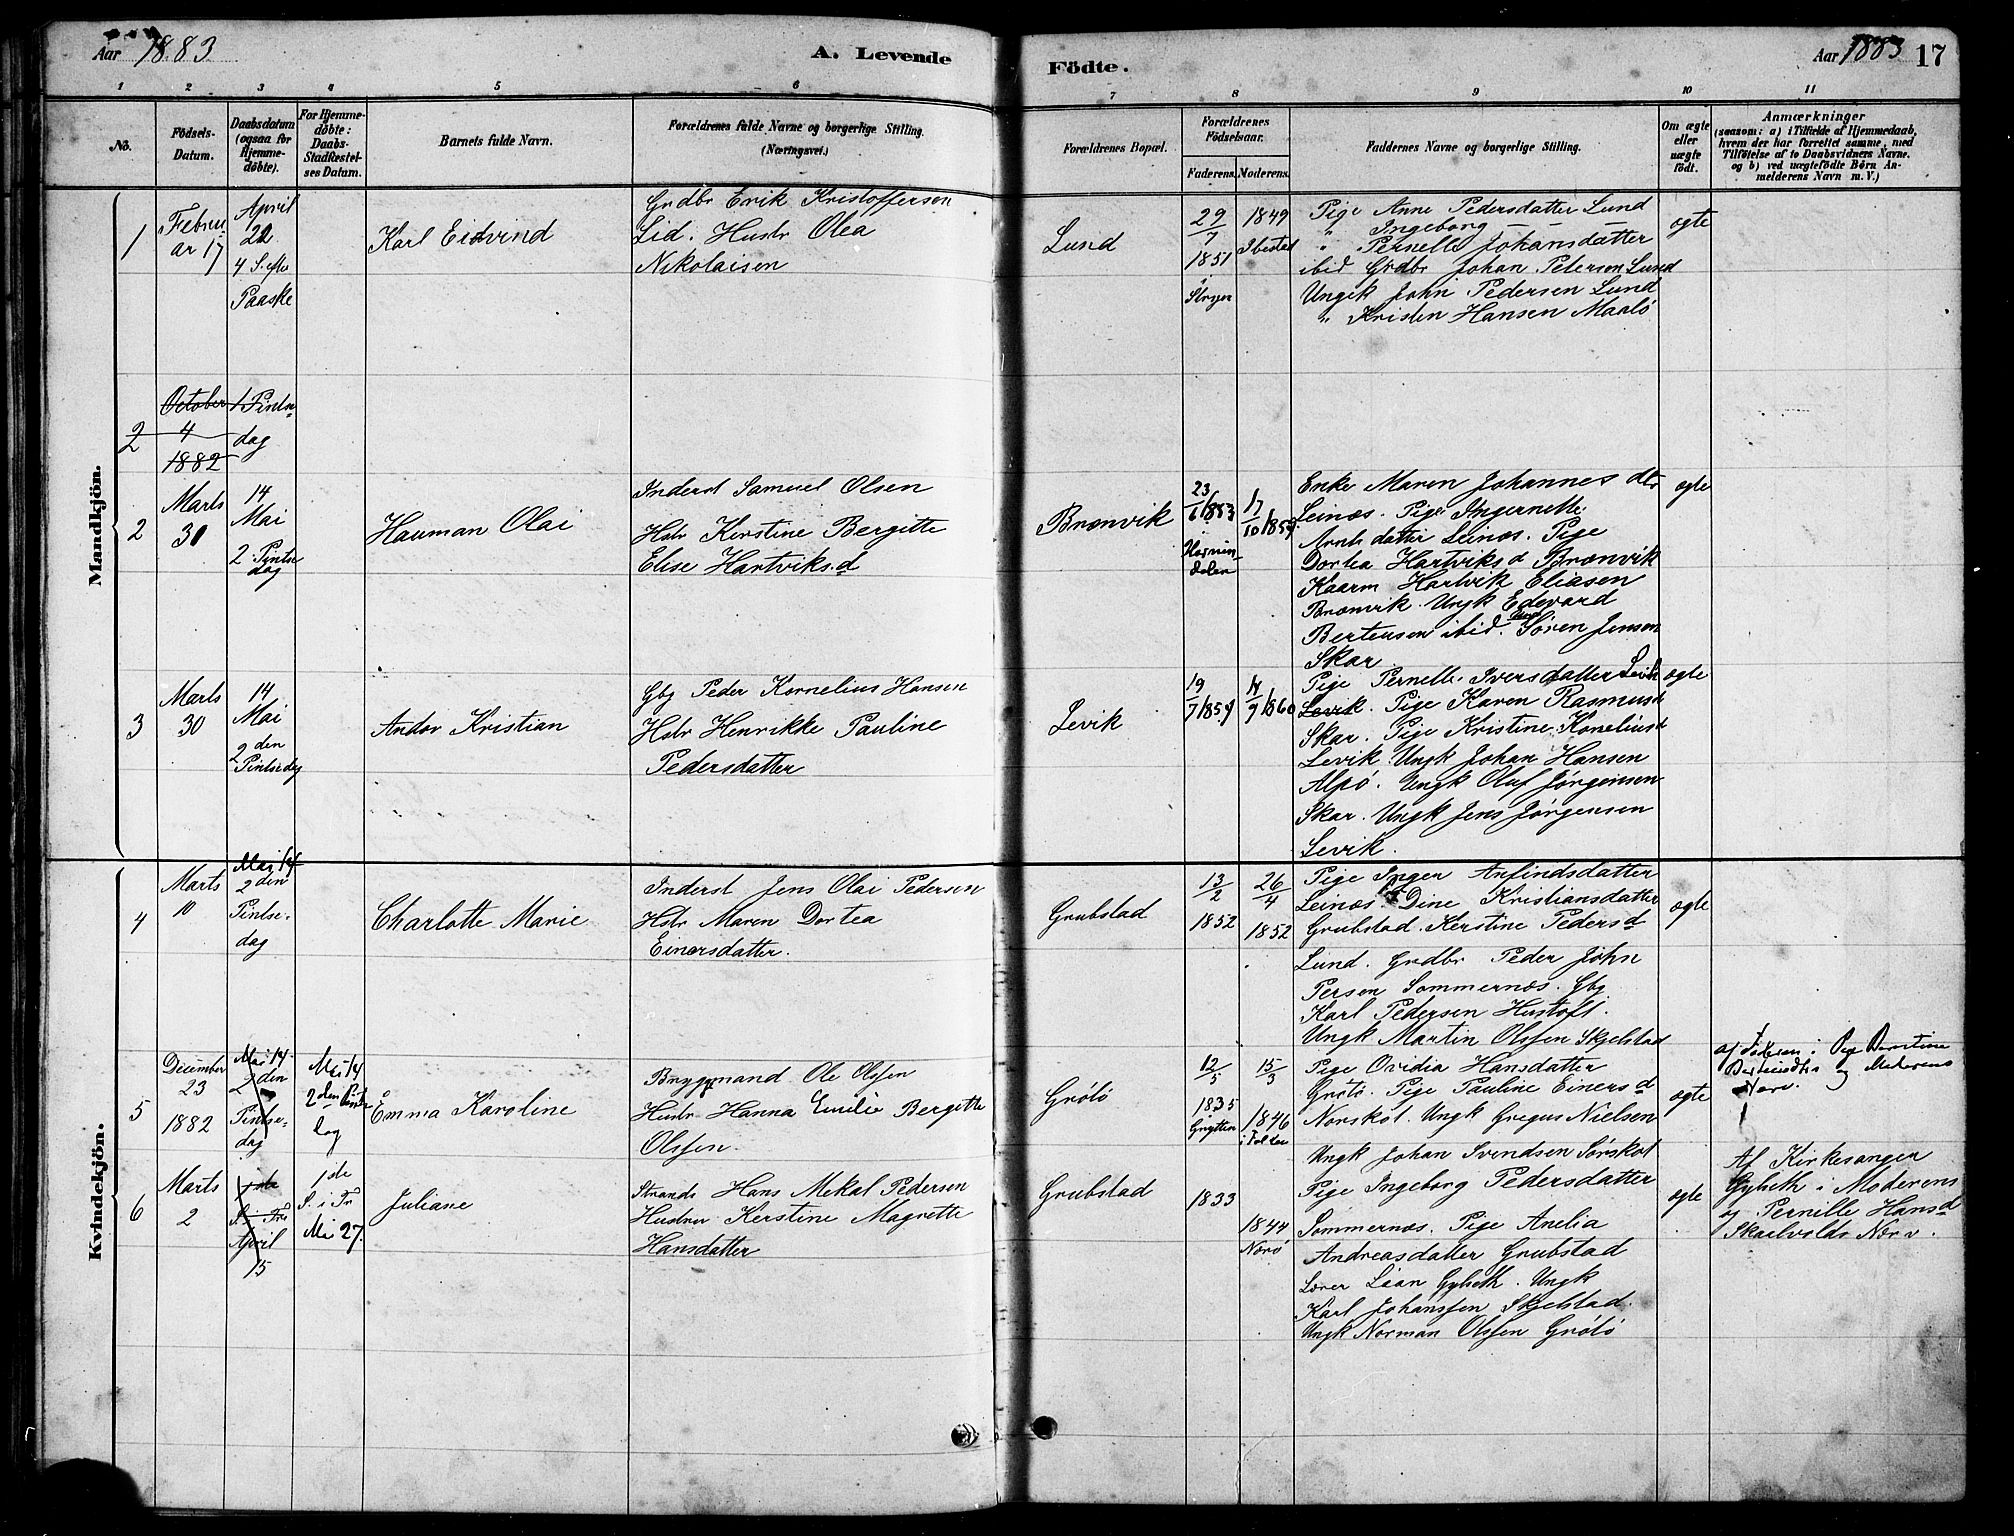 Aar 1883
A. Levende
Födte.
Aar 1883
17
1 2 3 4 5 6 7 8 9 10 11
No.
Födsels-
Datum.
Daabsdatum
(ogsaa for
Hjemme-
döbte).
For Hjemme-
döbte:
Daabs-
Stadfæstel-
ses Datum.
Barnets fulde Navn.
Forældrenes fulde Navne og borgerlige Stilling.
(Næringsvei.)
Forældrenes Bopæl.
Forældrenes
Födselsaar.
Faderens.
Moderens.
Faddernes Navne og borgerlige Stilling.
Om ægte
eller
uægte
födt.
Anmærkninger
(saasom: a) i Tilfælde af Hjemmedaab,
hvem der har forrettet samme, med
Tilföielse af to Daabsvidners Navne.
og b) ved uægtefödte Börn An-
melderens Navn m. V.)
Mandkjön.
1
Febru
ar 17
April
22
4 S. efter
Paaske
Karl Eidvind
Grdbr Erik Kristoffersen
Lid. Hustr Olea
Nikolaisen
Lund
29
7
1851
i
Stryen
1849
Ibestad
Pige Anne Pedersdatter Lund
" Ingeborg —
" Pernelle Johansdatter
ibid Grdbr Johan Petersen Lund
Ungk John Pedersen Lund
" Kristen Hansen Maalö
ægte
2
October
4
1882
1 Pintse
dag
2
Marts
30
14
Mai
2 Pintse
dag
Hauman Olai
Inderst Samuel Olsen
Hstr Kerstine Bergitte
Elise Hartviks.d
Brænvik
23
6/1853
Hornin-
dalen
17
10/1859
Enke Maren Johannes dtr
Leinæs. Pige Ingernelle
Arnts datter Leinæs. Pige
Dortea Hartviks d Brænvik
Kaarm Hartvik Eliasen
Brænvik. Ungk Edevard
Berteusen ibid. Ungk Sören Jensen
Skar
ægte
3
Marts
30
14
Mai
2 den
Pintsedag
Andor Kristian
Gbg Peder Kornelius Hansen
Hstr Henrikke Pauline
Pedersdatter
Levik
19
7/1859
14
9/1860
Pige Pernelle Iversdatter Levik
Levik. Pige Karen Rasmusd
Skar. Pige Kristine Korneliusd
Levik. Ungk Johan Hansen
Alpö. Ungk Oluf Jörgensen
Skar. Ungk Jens Jörgensen
Levik.
ægte
Kvindekjön.
4
Marts
10
Mai 14
2 den
Pintse-
dag
Charlotte Marie
Inderst Jens Olai Pedersen
Hstr Maren Dortea
Einersdatter.
Grubstad
13
2
1852
26
4
1852
Pige Inger Anfindsdatter
Leinæs. Dine Kristiansdatter
Grubstad. Kerstine Pedersd
Lund. Grdbr Peder John
Persen Sommernæs. Gbg
Karl Pedersen Hustoft.
Ungk Martin Olssen Skjelstad
ægte
5
December
23
1882
Mai 14
2 den
Pintse-
dag
Mai 14
2 den Pintse
dag
Emma Karoline
Bnygmand Ole Olssen
Hustr. Hanna Emilie Bergitte
Olssen.
Grötö
12
5
1835
Grytten
15
3
1846
i Folden
Pige Ovidia Hansdatter
Grötö. Pige Pauline Einersd
Norskot. Ungk Gregus Nielsen
Ungk Johan Svendsen Sørskot
ægte
af Faderen i
og Moderens
Nærv.
6
Marts
2
1ste
S. Tri
April
15
1 ste
S. i Tr
Mai 27
Juliane
Strands Hans Mekal Pedersen
Hustru Kerstine Magrette
Hansdatter
Grubstad
1833
1844
Nærö
Pige Ingeborg Pedersdatter
Sommernæs. Pige Anelia
Andreasdatter Grubstad
Lærer Lean Gylseth. Ungk
Karl Johanssen Skjelstad.
Ungk Norman Olssen Grötö
ægte
Af Kirkesanger
Gylseth i Moderens
og Pernille Hansd
Skailvolds Nærv.